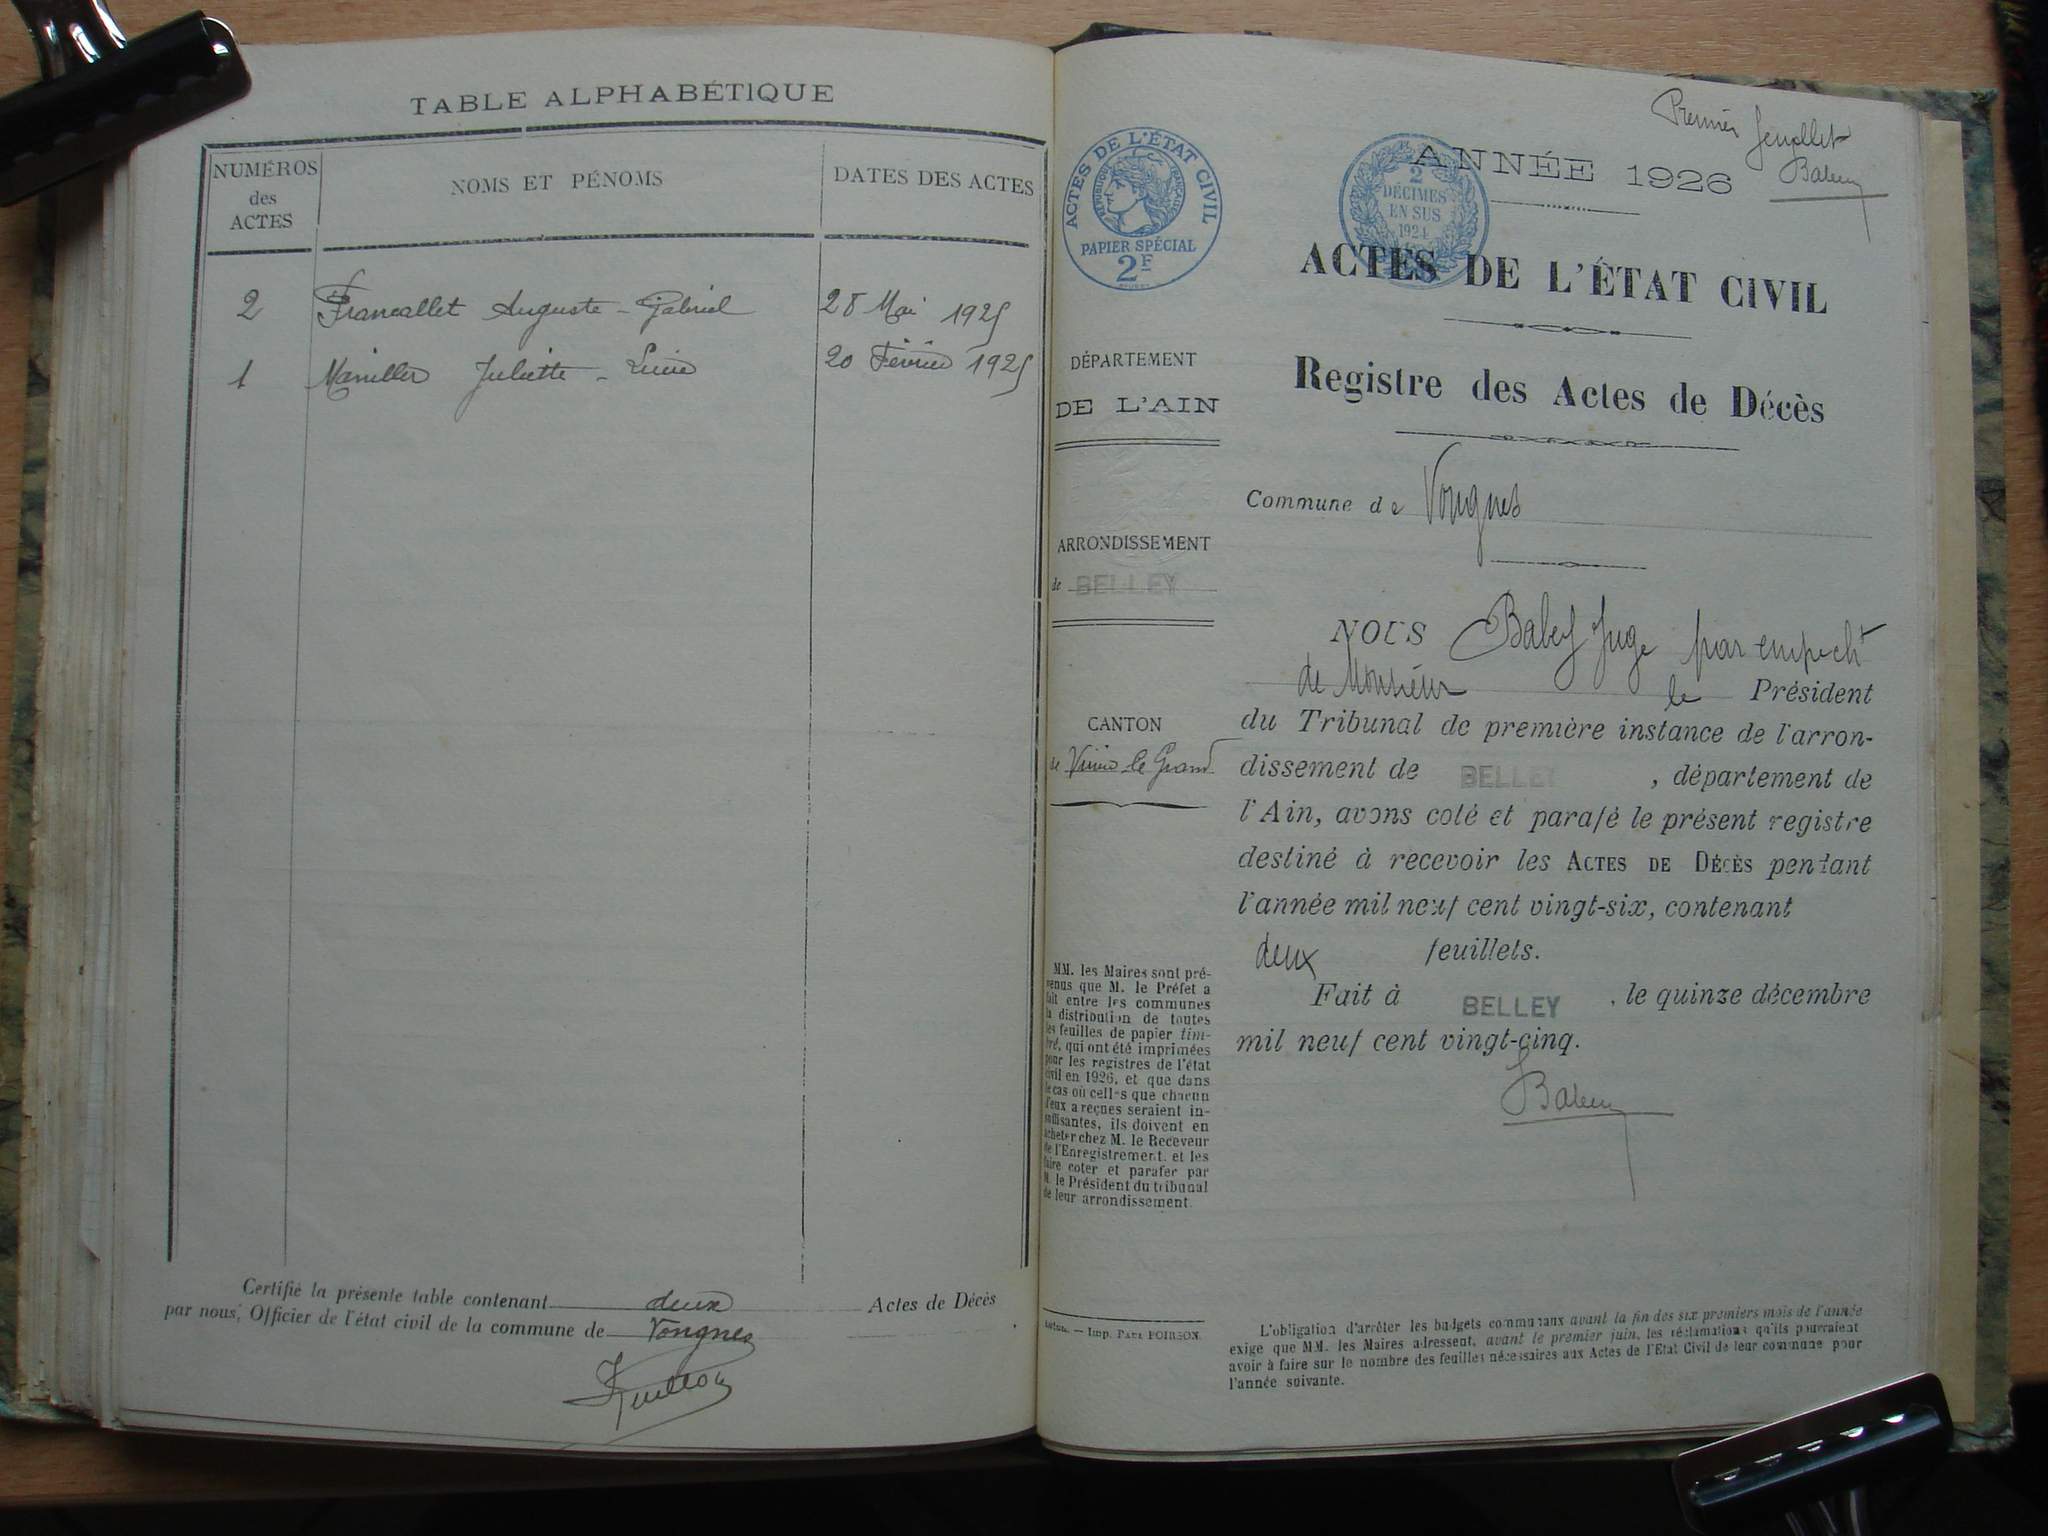 TABLE ALPHABÉTIQUE
NUMÉROS
des
ACTES
NOMS ET PÉNOMS
DATES DES ACTES
2 Francallet Auguste - Gabriel 28 Mai 1925
1 Juliette - Lucie 20 Février 1925
Certifié la présente table contenant deux Actes de Décès
par nous, Officier de l'état civil de la commune de Vongnes
ACTES DE L'ÉTAT CIVIL
RÉPUBLIQUE FRANÇAISE
PAPIER SPÉCIAL
2F
DÉPARTEMENT
DE L'AIN
ARRONDISSEMENT
de BELLEY
CANTON
de Virieu-le-Grand
MM. les Maires sont pré-
venus que M. le Préfet a
fait entre les communes
la distribution de toutes
les feuilles de papier tim-
bré, qui ont été imprimées
pour les registres de l'état
civil en 1926, et que dans
le cas où celles que chacun
d'eux a reçues seraient in-
suffisantes, ils doivent en
acheter chez M. le Receveur
de l'Enregistrement, et les
faire coter et parafer par
M. le Président du tribunal
de leur arrondissement.
Imp. PAUL POIRSON.
Premier feuillet
2
DÉCIMES
EN SUS
1924
ANNÉE 1926
ACTES DE L'ÉTAT CIVIL
Registre des Actes de Décès
Commune de Vongnes
NOUS Juge par empecht
de Monsieur le Président
du Tribunal de première instance de l'arron-
dissement de BELLEY, département de
l'Ain, avons coté et parafé le présent registre
destiné à recevoir les ACTES DE DÉCÈS pendant
l'année mil neuf cent vingt-six, contenant
deux feuillets.
Fait à BELLEY, le quinze décembre
mil neuf cent vingt-cinq.
L'obligation d'arrêter les budgets communaux avant la fin des six premiers mois de l'année
exige que MM. les Maires adressent, avant le premier juin, les réclamations qu'ils pourraient
avoir à faire sur le nombre des feuilles nécessaires aux Actes de l'Etat Civil de leur commune pour
l'année suivante.